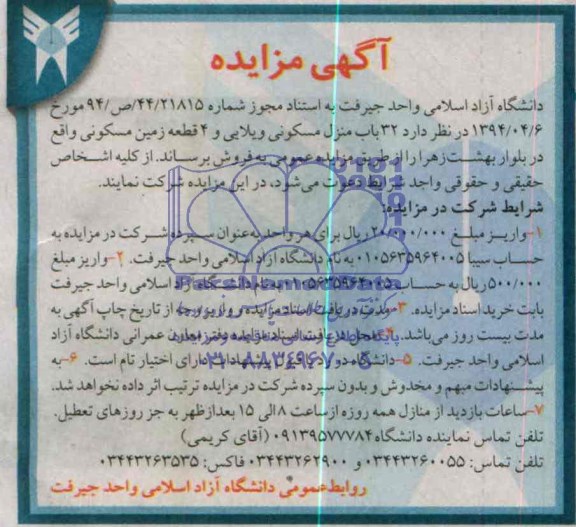 آگهی مزایده
دانشگاه آزاد اسلامی واحد جیرفت به استناد مجوز شماره ۴۴/۲۱۸۱۵/ص/۹۴ مورخ
۱۳۹۴/۰۴/۶ در نظر دارد ۳۲ باب منزل مسکونی ویلایی و ۴ قطعه زمین مسکونی واقع
در بلوار بهشت زهرا را از طریق مزایده عمومی به فروش برساند. از کلیه اشخاص
حقیقی و حقوقی واجد شرایط دعوت می‌شود، در این مزایده شرکت نمایند.
شرایط شرکت در مزایده:
۱-واریز مبلغ ۲۰/۰۰۰/۰۰۰ ریال برای هر واحد به عنوان سپرده شرکت در مزایده به
حساب سیبا ۰۱۰۵۶۳۵۹۶۴۰۰۵ به نام دانشگاه آزاد اسلامی واحد جیرفت. ۲-واریز مبلغ
۵۰۰/۰۰۰ ریال به حساب ۰۱۰۵۶۳۵۹۶۴۰۰۵ به نام دانشگاه آزاد اسلامی واحد جیرفت
بابت خرید اسناد مزایده. ۳-مدت دریافت اسناد مزایده و واریز وجه از تاریخ چاپ آگهی به
مدت بیست روز می‌باشد. ۴-محل دریافت اسناد مزایده دفتر معاون عمرانی دانشگاه آزاد
اسلامی واحد جیرفت. ۵-دانشگاه در رد یا قبول پیشنهادات دارای اختیار تام است. ۶-به
پیشنهادات مبهم و مخدوش و بدون سپرده شرکت در مزایده ترتیب اثر داده نخواهد شد.
۷-ساعات بازدید از منازل همه روزه از ساعت ۸ الی ۱۵ بعدازظهر به جز روزهای تعطیل.
تلفن تماس نماینده دانشگاه ۰۹۱۳۹۵۷۷۷۸۴ (آقای کریمی)
تلفن تماس: ۰۳۴۴۳۲۶۰۰۵۵ و ۰۳۴۴۳۲۶۲۹۰۰ فاکس: ۰۳۴۴۳۲۶۳۵۳۵
روابط عمومی دانشگاه آزاد اسلامی واحد جیرفت